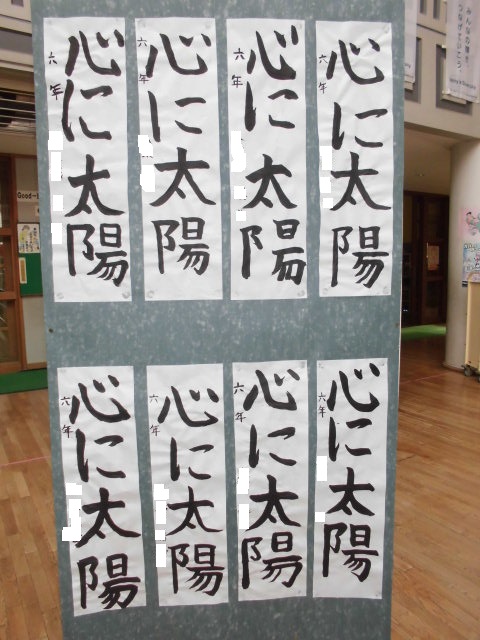 心に太陽
六年
心に太陽
六年
心に太陽
六年
心に太陽
六年
心に太陽
六年
心に太陽
六年
心に太陽
六年
心に太陽
六年
みんなの輝き
つなげていこう
Good